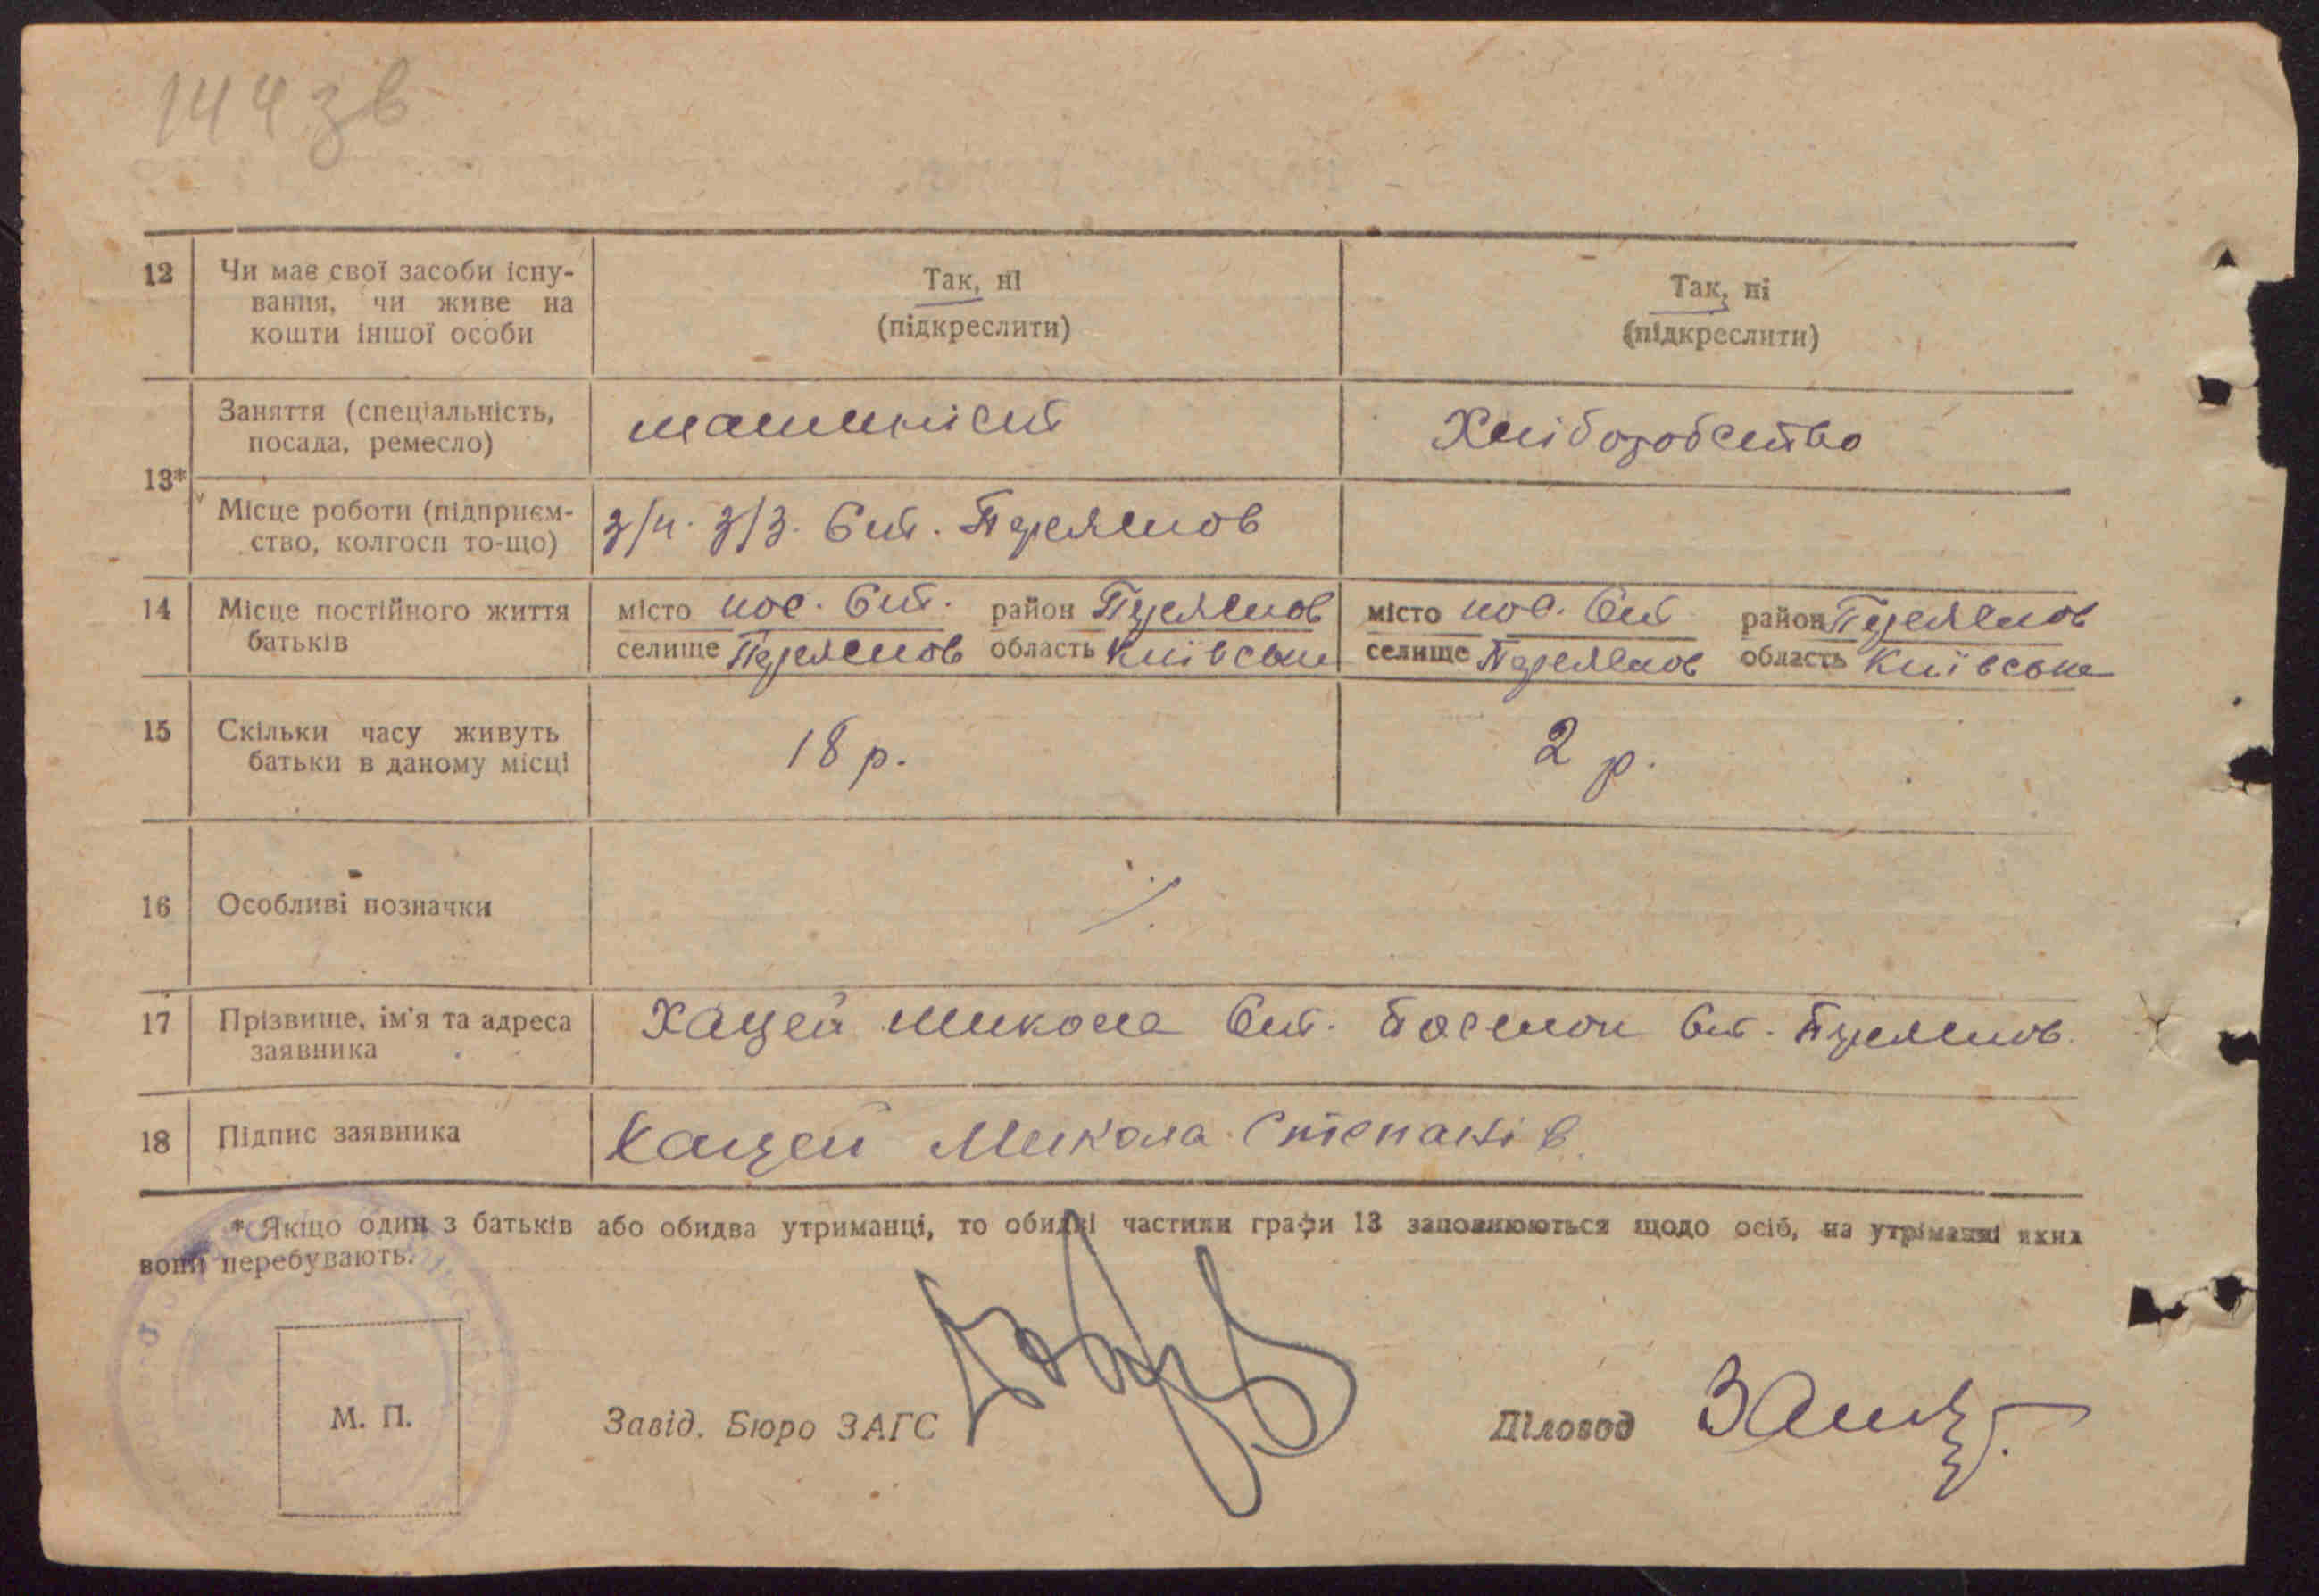 144 зв
12 Чи має свої засоби існу-
вання, чи живе на
кошти іншої особи
Так, ні
(підкреслити)
Так, ні
(підкреслити)
13*
Заняття (спеціальність,
посада, ремесло)
машиніст
Хліборобство
Місце роботи (підприєм-
ство, колгосп то-що)
з/ч. з/з. Ст. Переяслов
14 Місце постійного життя
батьків
місто пос. Ст. район Переяслов
селище Переяслов область Київська
місто пос. Ст район Переяслов
селище Переяслов область Київська
15 Скільки часу живуть
батьки в даному місці
18 р.
2 р.
16 Особливі позначки
17 Прізвище, ім'я та адреса
заявника
Хацей Микола Ст. Ст. Переяслов
18 Підпис заявника
Хацей Микола Степанів
* Якщо один з батьків або обидва утриманці, то обидві частини графи 13 заповнюються щодо осіб, на утриманні яких
вони перебувають.
М. П.
Завід. Бюро ЗАГС
Діловод